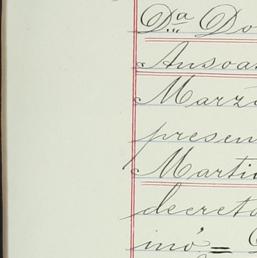 Dª Do
Ansoa
Marz
presen
Marti
decreto
inó =